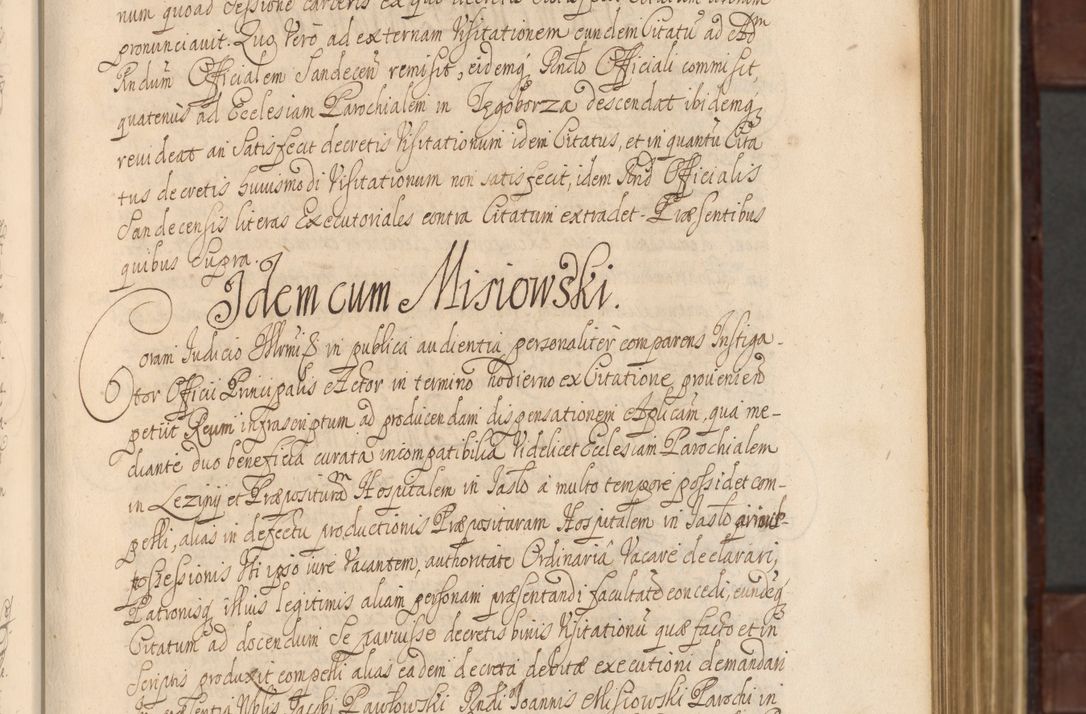 num quoad Sessione carceris ex quo
pronunciavit. Quo Vero ad externam Visitationem eundem Citatū ad Adm
Rndum Officialem Sandecen̄ remisit, eidemq́ Rndo Officiali commisit,
quatenus ad Ecclesiam Parochialem in Jzgoborza descendat ibidemq́
revideat an Satisfecit decretis Visitationum idem Citatus, et in quantū Cita
tus decretis huiusmodi Visitationum non satisfecit, idem Rnd Officialis
Sandecensis literas Executoriales contra Citatum extradet. Præsentibus
quibus Supra.
Idem cum Misiowski.
Coram Iudicio Illrmi ß in publica audientia personaliter comparens Instiga-
tor Officii Principalis Actor in termino hodierno ex Citatione provenien̄
petiit Reum infrascriptum ad producendam dispensationem Aplicam, qua me-
diante duo beneficia curata incompatibilia Videlicet Ecclesiam Parochialem
in Lezyny et Præposituram Hospitalem in Jaslo a multo tempore possidet com-
pelli, alias in defectu productionis Præposituram Hospitalem in Jaslo
possessionis Uti ipso iure Vacantem, authoritate Ordinaria Vacare declarari,
Patronisq́ illius legitimis aliam personam præsentandi facultatē concedi, eundēq́
Citatum ad docendum Se paruisse decretis binis Visitationū quæ facto et in
Scriptis produxit compelli alias eadem decreta debitæ executioni demandari
Præsentia Nblis Jacobi Pawlowski Rndi Joannis Misiowski Parochi in